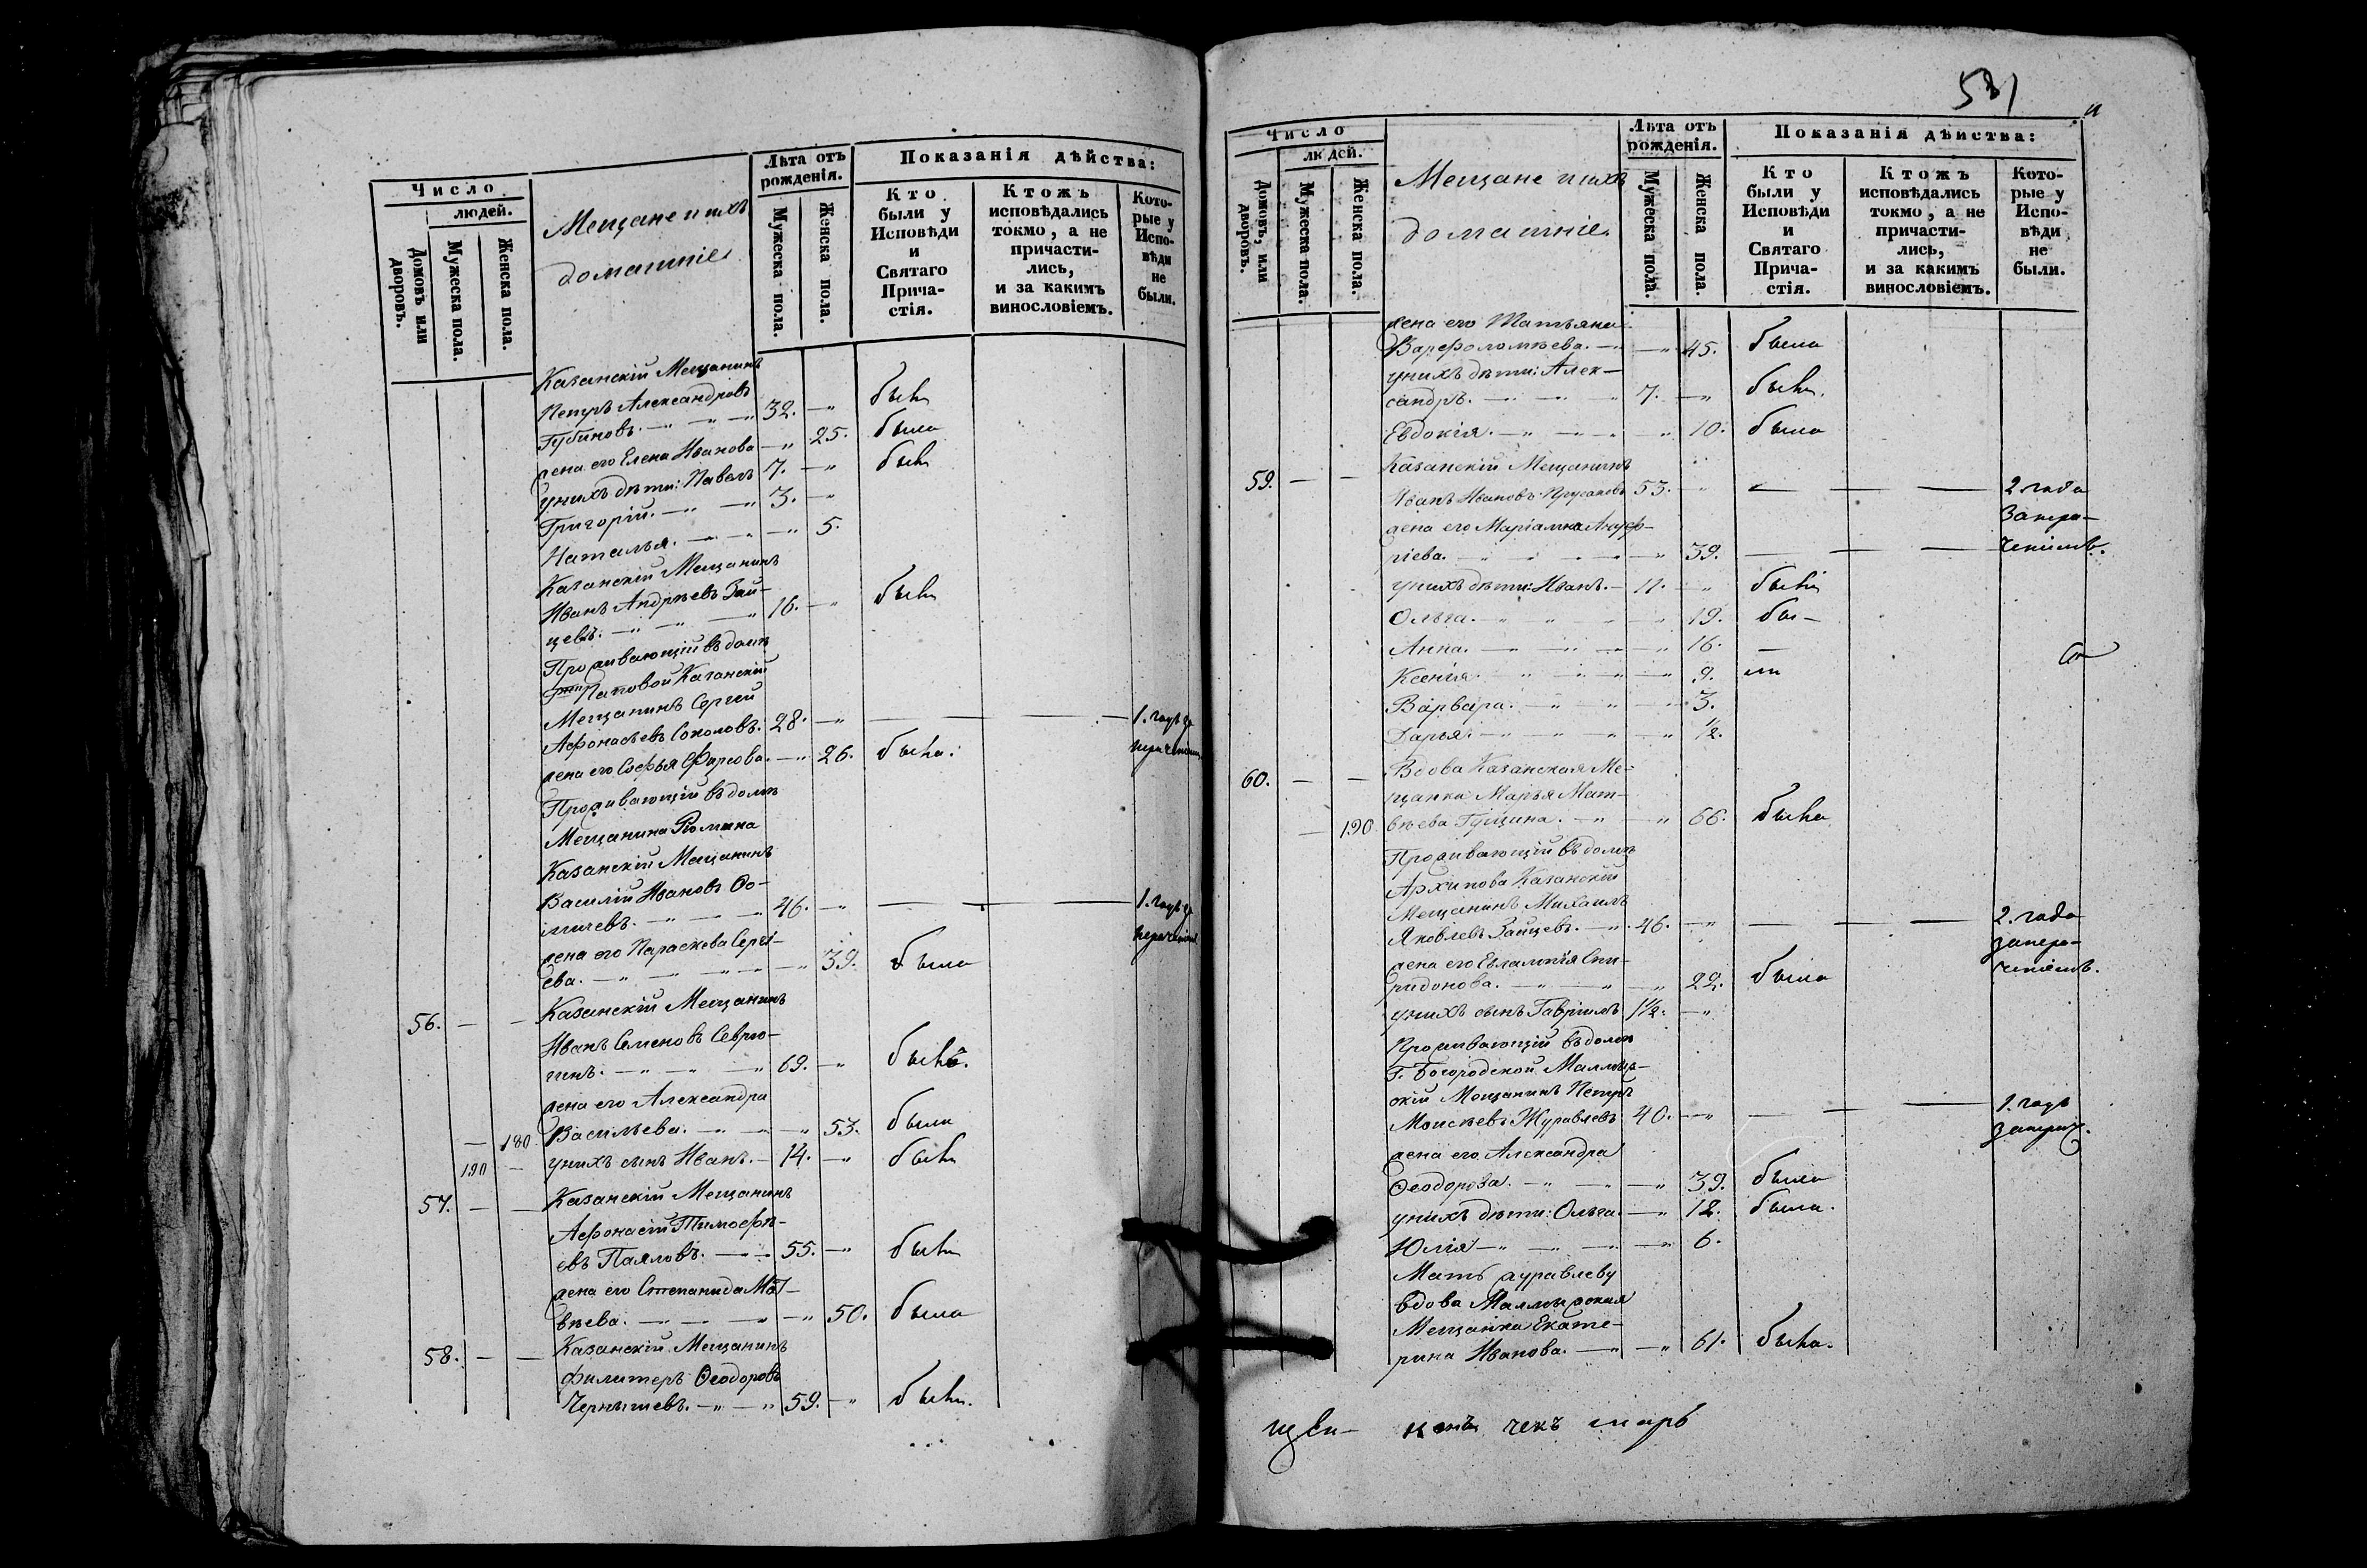 Число
людей.
Домовъ или дворовъ.
Мужеска пола.
Женска пола.
Мещане и ихъ
домашніе
Лѣта отъ
рожденія.
Мужеска пола.
Женска пола.
Показанія дѣйства:
Кто
были у
Исповѣди
и
Святаго
Прича-
стія.
Ктожъ
исповѣдались
токмо, а не
причасти-
лись,
и за какимъ
винословіемъ.
Кото-
рые у
Испо-
вѣди
не
были.
Казанскій Мещанинъ
Петръ Александровъ
Губиновъ. 32. былъ
жена его Елена Иванова 25. была
у нихъ дѣти: Павелъ 7. былъ
Григорій. 3.
Наталья. 5.
Казанскій Мещанинъ
Иванъ Андреевъ Зай-
цевъ. 16. былъ
Проживающій въ домѣ
Паповой Казанскій
Мещанинъ Сергей
Афонасьевъ Соколовъ. 28. 1. годъ за
жена его Софья 26. была.
Проживающій въ домѣ
Мещанина Романа
Казанскій Мещанинъ
Василій Ивановъ Ѳо-
мичевъ. 46. 1. годъ за
жена его Параскева Сергі-
ева. 39. была
56. Казанскій Мещанинъ
Иванъ Семеновъ Севрю-
гинъ. 69. былъ.
жена его Александра
180 Васильева. 53. была
190 у нихъ сынъ Иванъ. 14. былъ
57. Казанскій Мещанинъ
Афонасій Тимофѣ-
евъ Паяловъ. 55. былъ
жена его Степанида Мат-
вѣева. 50. была
58. Казанскій Мещанинъ
Филитеръ Ѳеодоровъ
Чернышевъ. 59. былъ.
581
Число
людей.
Домовъ, или дворовъ.
Мужеска пола.
Женска пола.
Мещане и ихъ
домашніе.
Лѣта отъ
рожденія.
Мужеска пола.
Женска пола.
Показанія дѣйства:
Кто
были у
Исповѣди
и
Святаго
Прича-
стія.
Ктожъ
исповѣдались
токмо, а не
причасти-
лись,
и за какимъ
винословіемъ.
Кото-
рые у
Испо-
вѣди
не
были.
жена его Татьяна
Варфоломѣева. 45. была
у нихъ дѣти: Алек-
сандръ. 7. былъ.
Евдокія. 10. была
59. Казанскій Мещанинъ
Иванъ Ивановъ Прусаковъ 53. 2. года
жена его Маріамна Ануф-
ріева. 39.
у нихъ дѣти: Иванъ. 11. былъ
Ольга. 19. бы-
Анна. 16.
Ксенія. 9. ли
Варвара. 3.
Дарья. 1/2.
60. Вдова Казанская Ме-
щанка Марья Мат-
190. вѣева Гущина. 66. была
Проживающій въ домѣ
Архипова Казанскій
Мещанинъ Михаилъ
Яковлевъ Зайцевъ. 46. 2. года
жена его Евлампія Спи-
ридонова. 22. была
у нихъ сынъ Гавріилъ 1 1/2.
Проживающій въ домѣ
Г. Богородской Малмыж-
скій Мещанинъ Петръ
Моисѣевъ Журавлевъ 40. 1. годъ
жена его Александра
Ѳеодорова. 39. была
у нихъ дѣти: Ольга 12. была.
Юлія 6.
Мать Журавлеву
вдова Малмыжская
Мещанка Екате-
рина Иванова. 61. была.